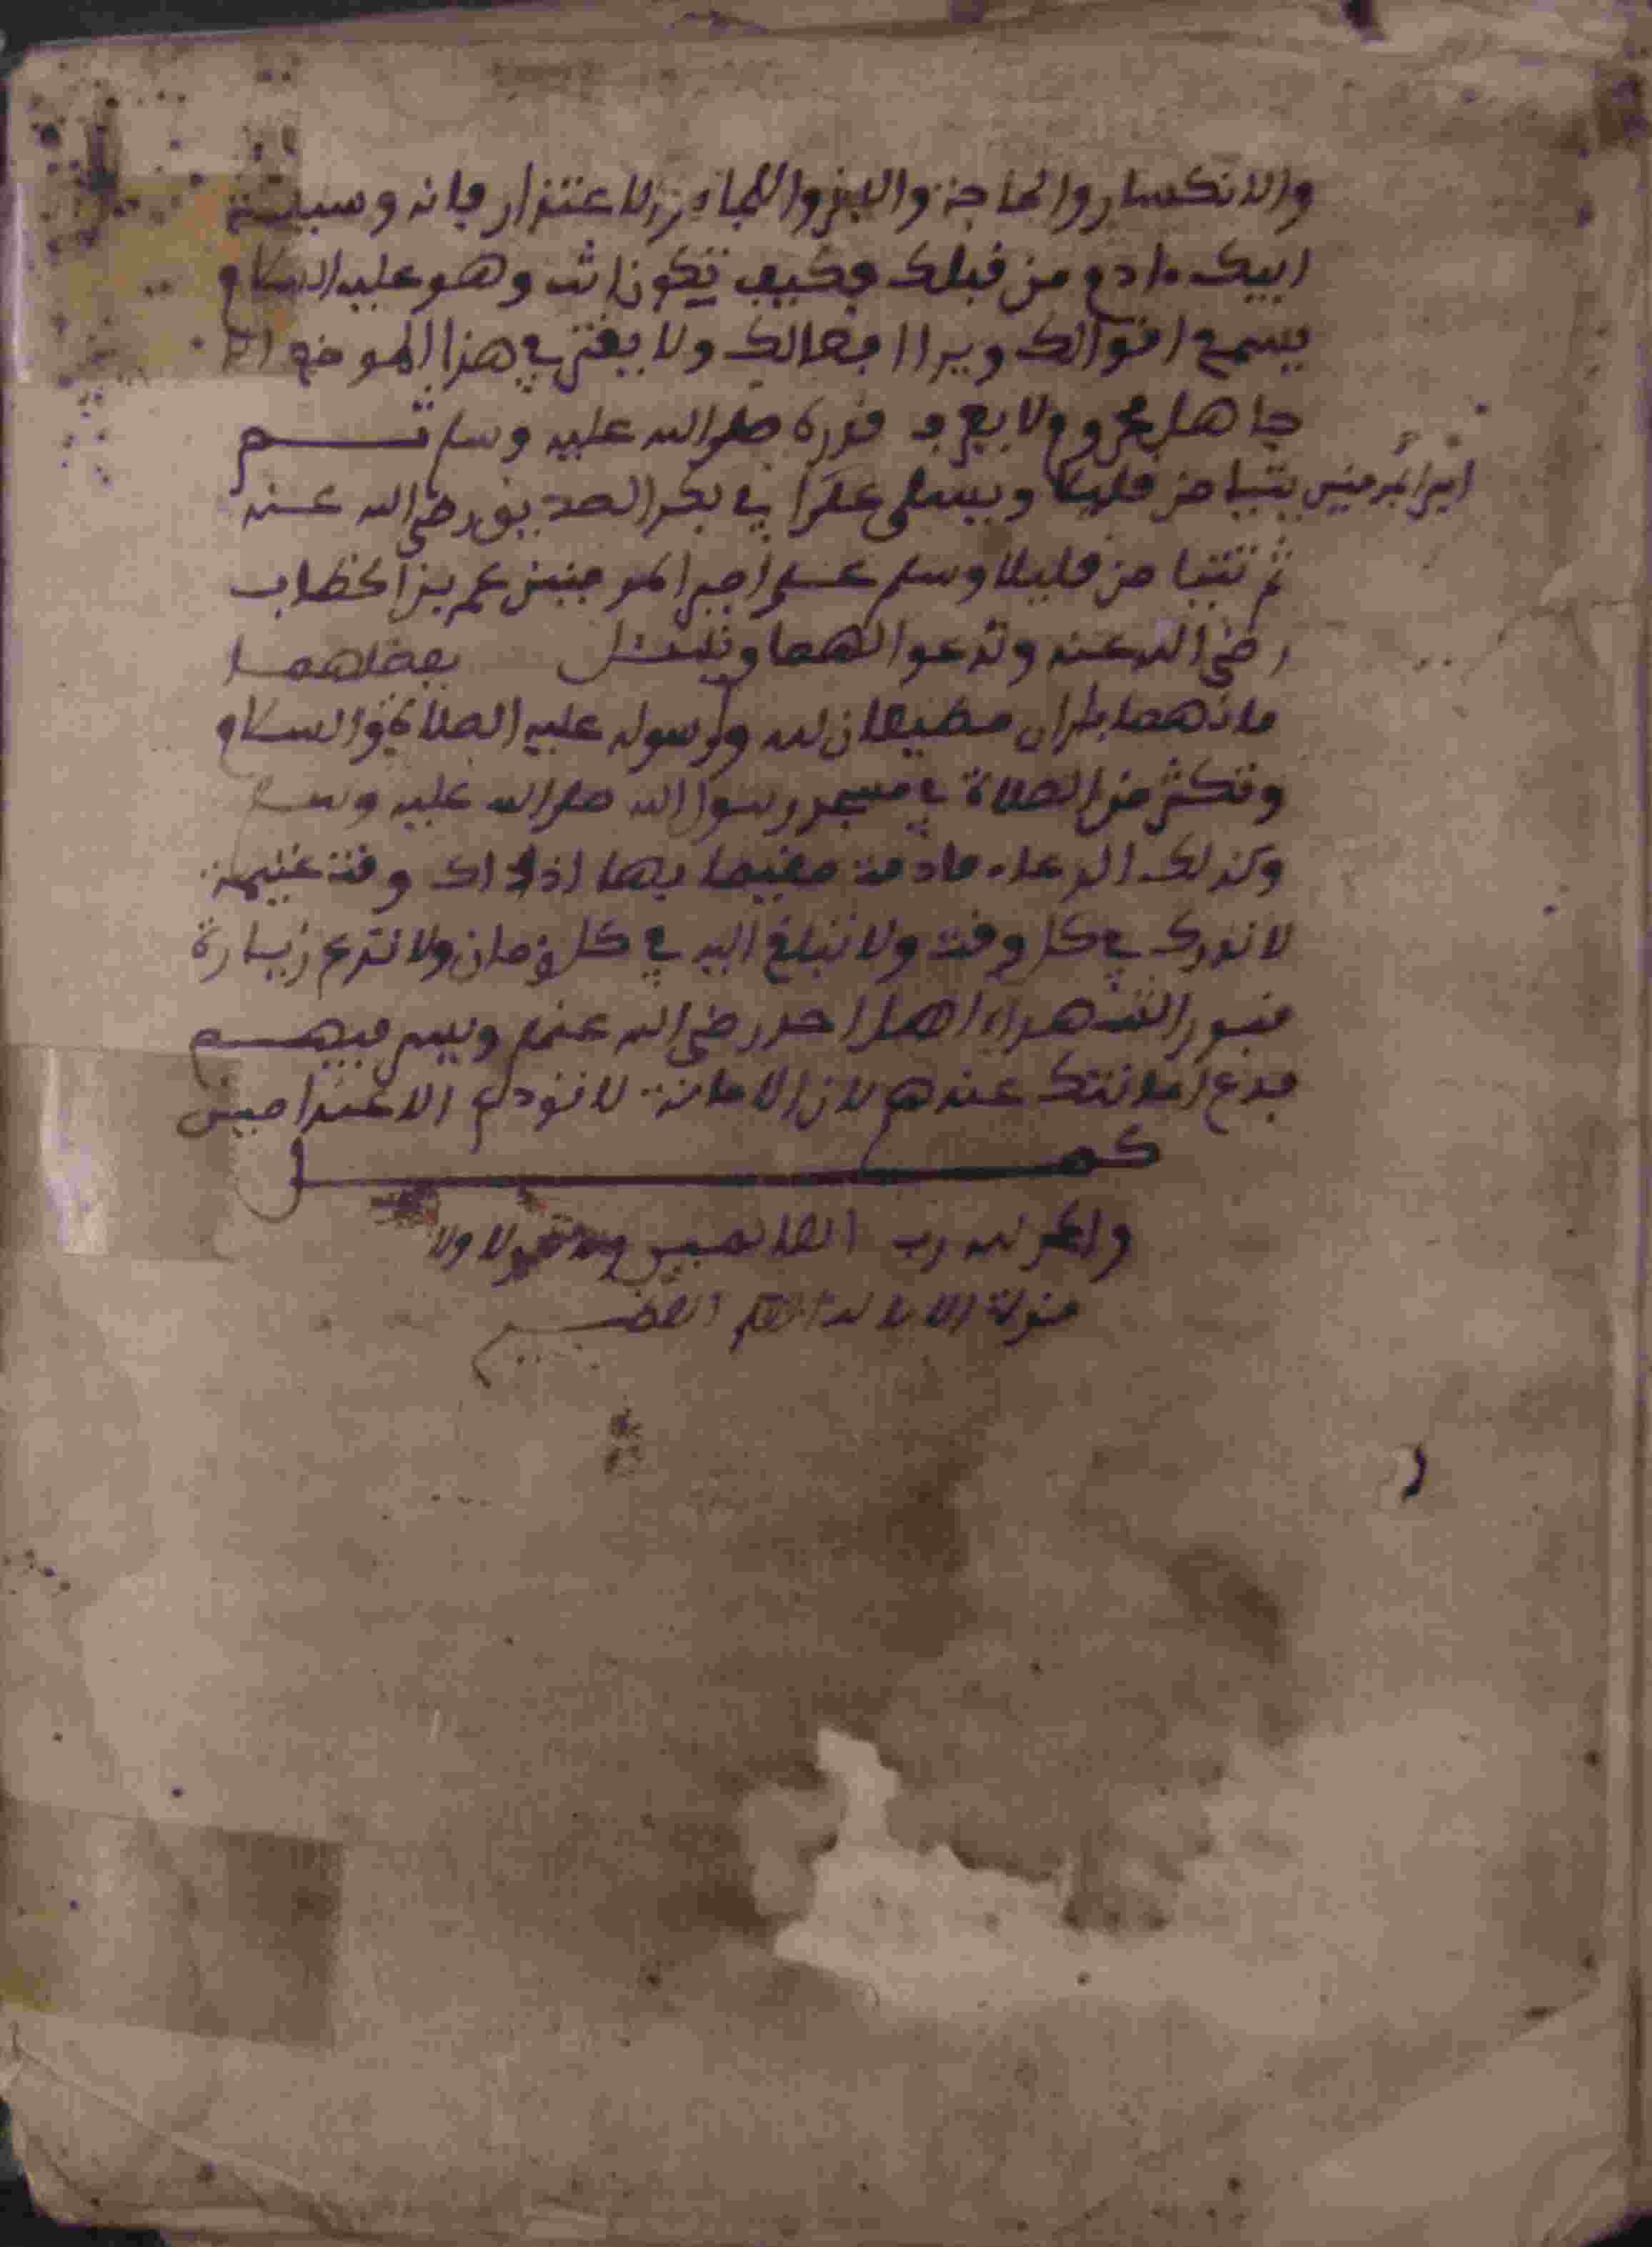 والانكسار والحاجة والابتـ والالتجاء والاعتذار فانه وسيلة
ابيك ءادم من قبلك فكيف تكون انت وهو عليه السلام
يسمع اقوالك ويرا افعالك ولا يفتر في هذا الموضع الا
جاهل محروم ولا يعرف قدره صلى الله عليه وسلم ثم
امير المومنين يتيامن قليلا ويسلم على ابي بكر الصديق رضي الله عنه
ثم تتيامن قليلا وسلم على امير المومنين عمر بن الخطاب
رضي الله عنه وتدعوا لهما بفضلهما
فانهما مطيعان لله ولرسوله عليه الصلاة والسلام
وتكثر من الصلاة في مسجد رسول الله صلى الله عليه وسلم
وكذلك الدعاء مادمت مقيما بها اذ ذاك وقت غنيمة
لا تدرك في كل وقت ولا تبلغ اليه في كل زمان ولا تدع زيارة
قبور الشهداء اهل احد رضي الله عنهم
فدع امانتك عندهم لان الامانة لا تودع الا عند امين
كمل
والحمد لله رب العالمين ولا حول ولا
قوة الا بالله العلي العظيم